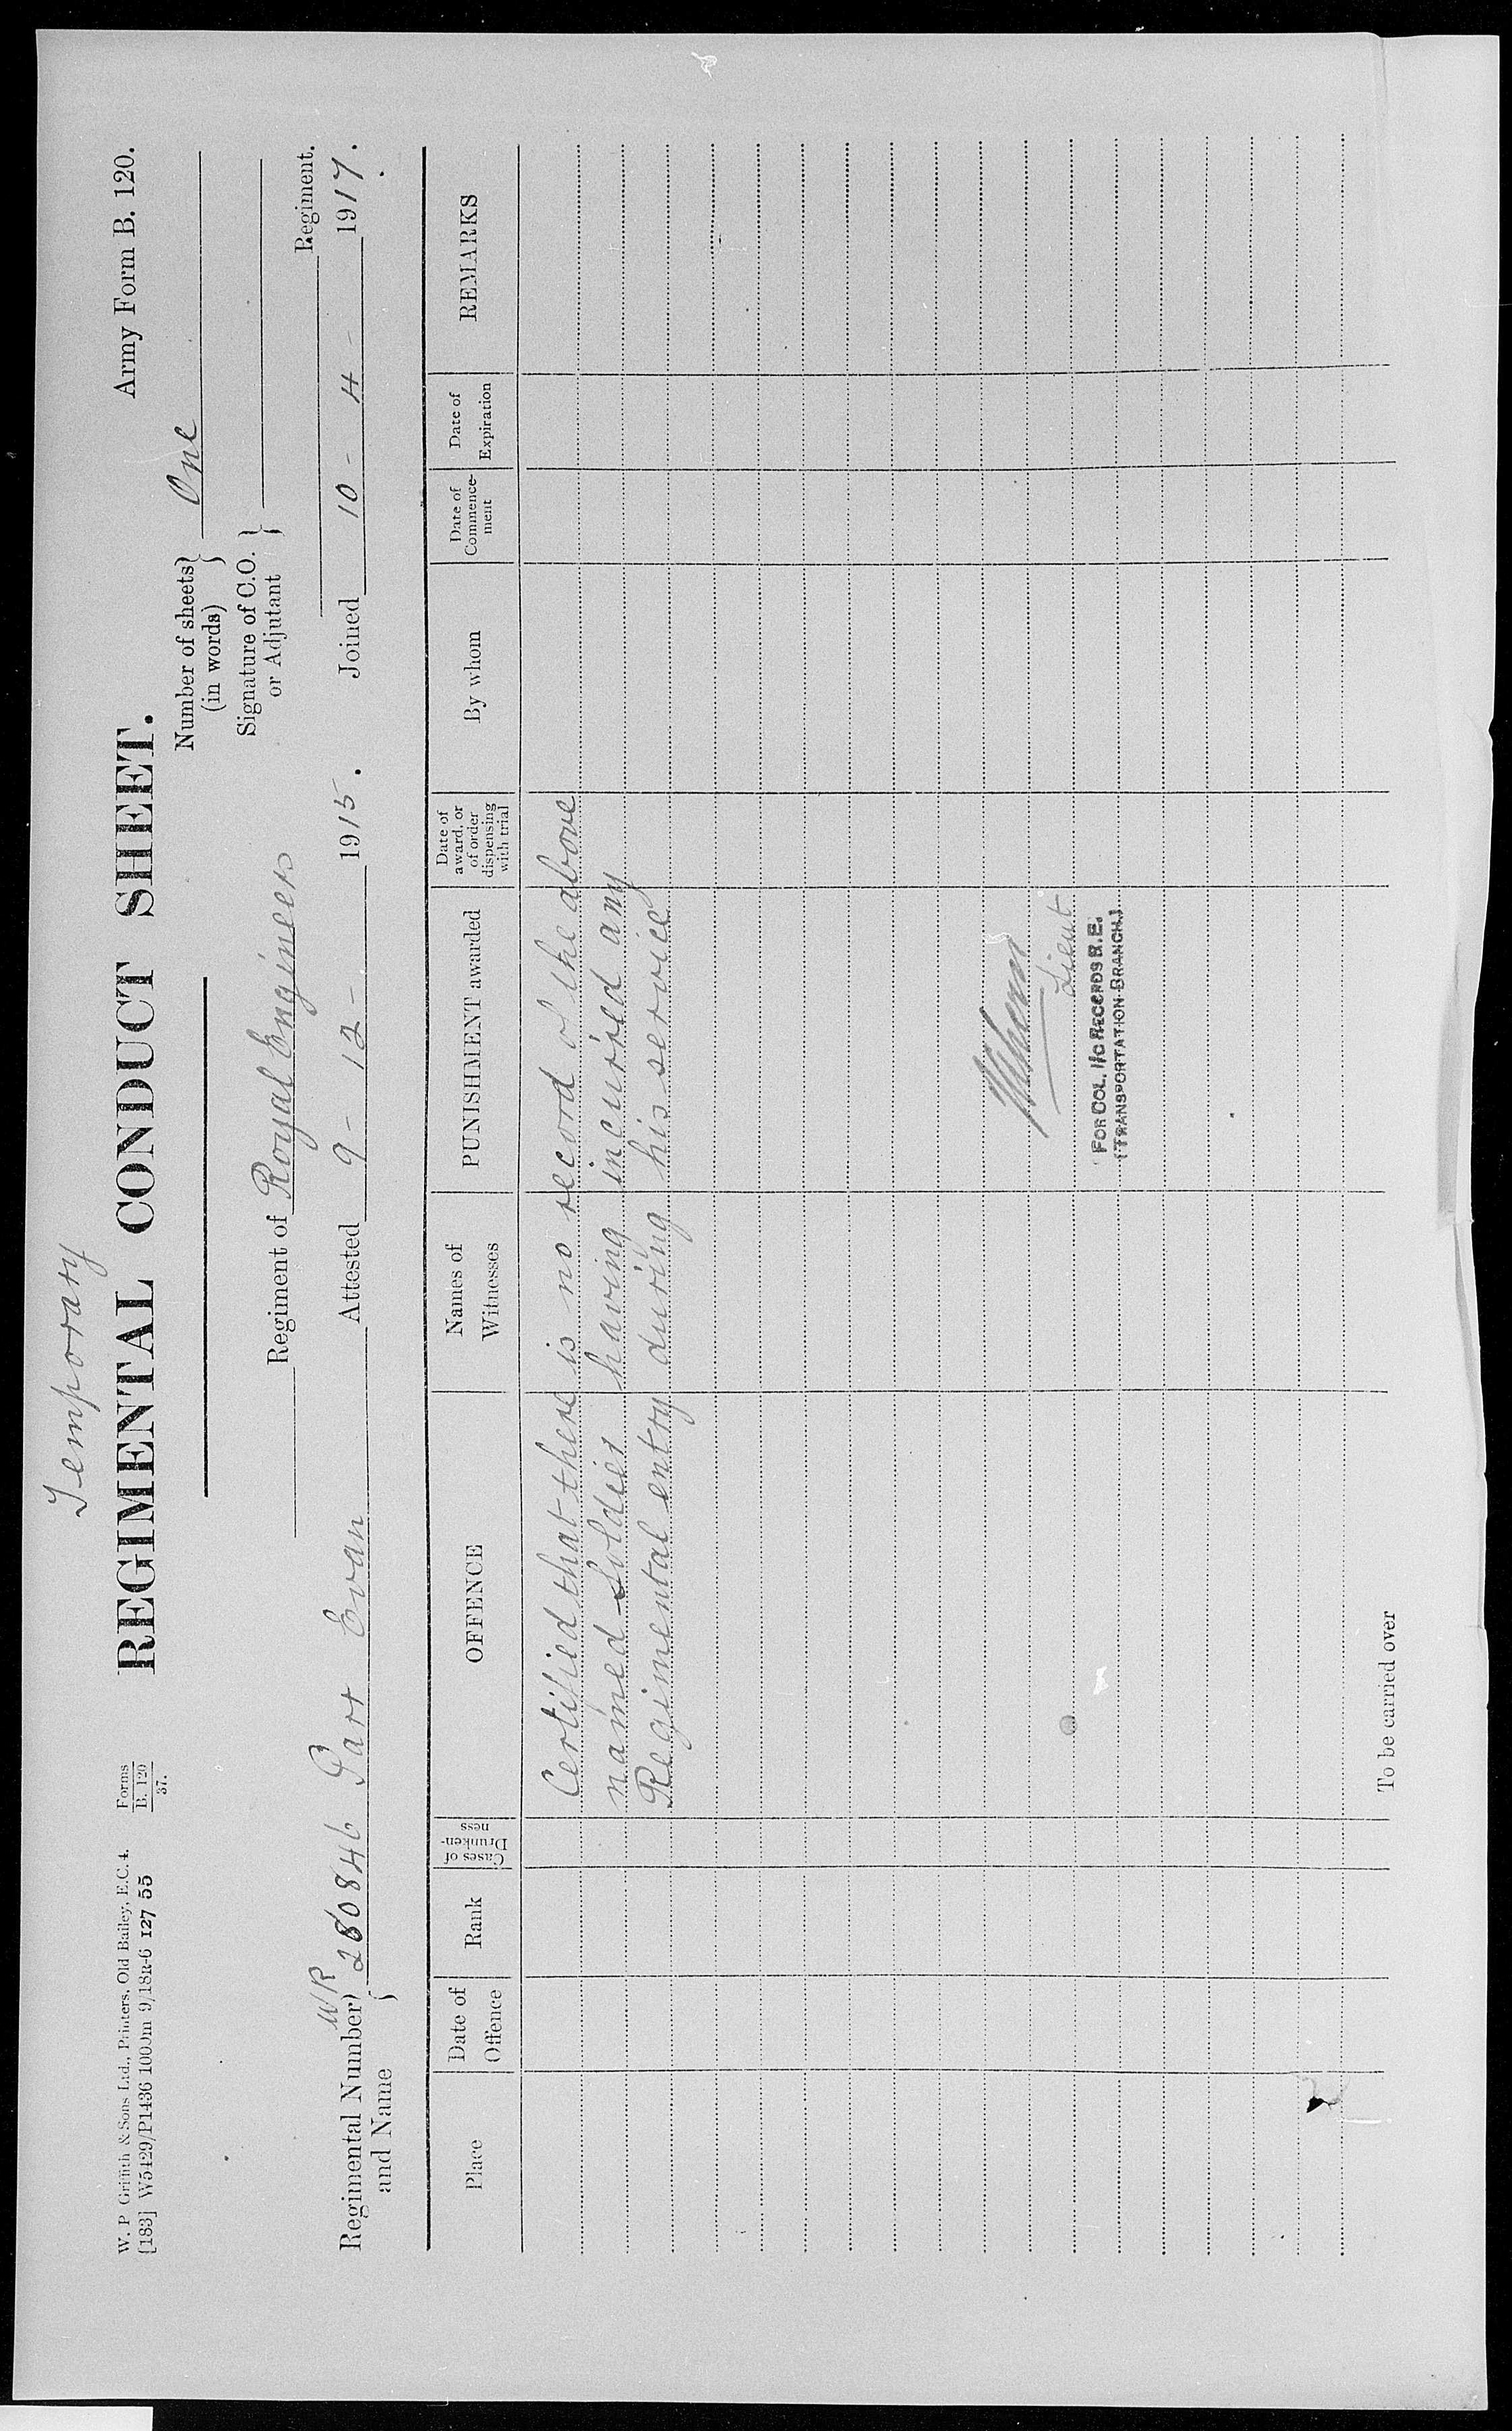 Temporary
W. P. Griffith & Sons Ltd., Printers, Old Bailey, E.C.4.
[183] W5429/P1436 1000m 9/18R-6 127 55
Forms
B. 120
37.
REGIMENTAL CONDUCT SHEET.
Army Form B. 120.
Number of sheets (in words) One
Signature of C.O. or Adjutant
Regiment of Royal Engineers Regiment.
WR
Regimental Number and Name 280846 Parr Evan Attested 9 - 12 - 1915. Joined 10 - 4 - 1917.
Place Date of Offence Rank Cases of Drunken-ness OFFENCE Names of Witnesses PUNISHMENT awarded Date of award, or of order dispensing with trial By whom Date of Commence-ment Date of Expiration REMARKS
Certified that there is no record of the above
named Soldier having incurred any
Regimental entry during his service
Lieut
FOR COL. I/C RECORDS R.E.
(TRANSPORTATION BRANCH.)
To be carried over